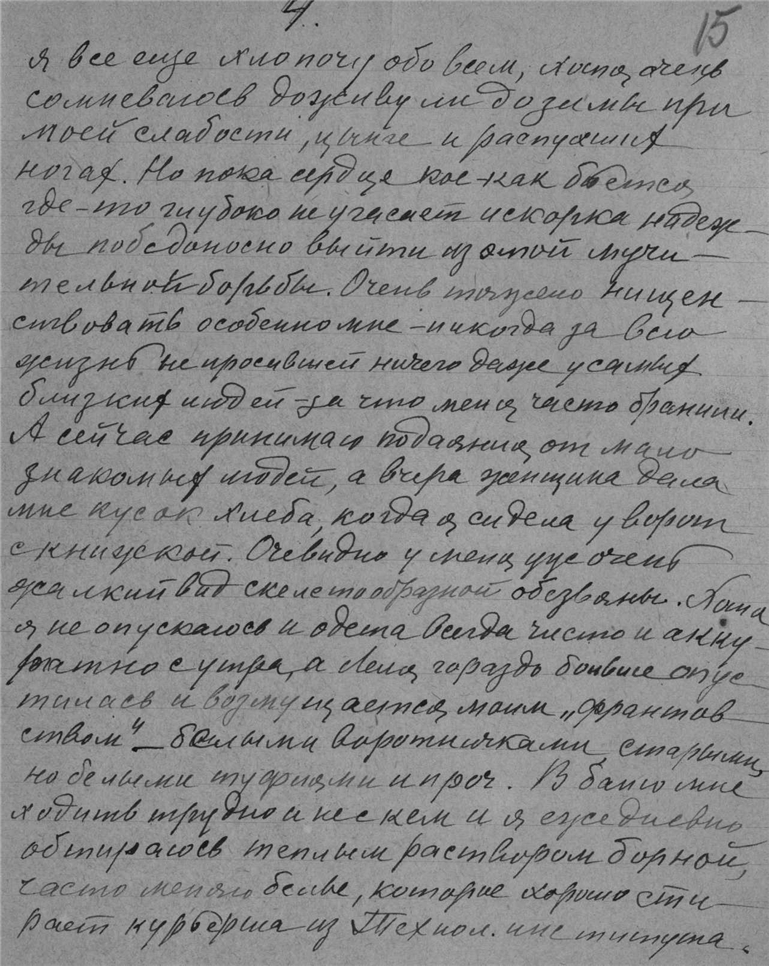 4.
15
я все еще хлопочу обо всем, хотя очень
сомневаюсь доживу ли до зимы при
моей слабости, цынге и распухших
ногах. Но пока сердце кое-как бьется
где-то глубоко не угасает искорка надеж-
ды победоносно выйти из этой мучи-
тельной борьбы. Очень тяжело нищен-
ствовать особенно мне – никогда за всю
жизнь не просившей ничего даже у самых
близких людей – за что меня часто бранили.
А сейчас принимаю подаяния от мало
знакомых людей, а вчера женщина дала
мне кусок хлеба, когда я сидела у ворот
с книжкой. Очевидно у меня уже очень
жалкий вид скелетообразной обезьяны. Хотя
я не опускаюсь и одета всегда чисто и акку-
ратно с утра, а Леля гораздо больше опус-
тилась и возмущается моим „франтов-
ством" – белыми воротничками, старыми,
но белыми туфлями и проч. В баню мне
ходить трудно и не с кем и я ежедневно
обтираюсь теплым раствором борной,
часто меняю белье, которое хорошо сти-
рает курьерша из Технол. института.